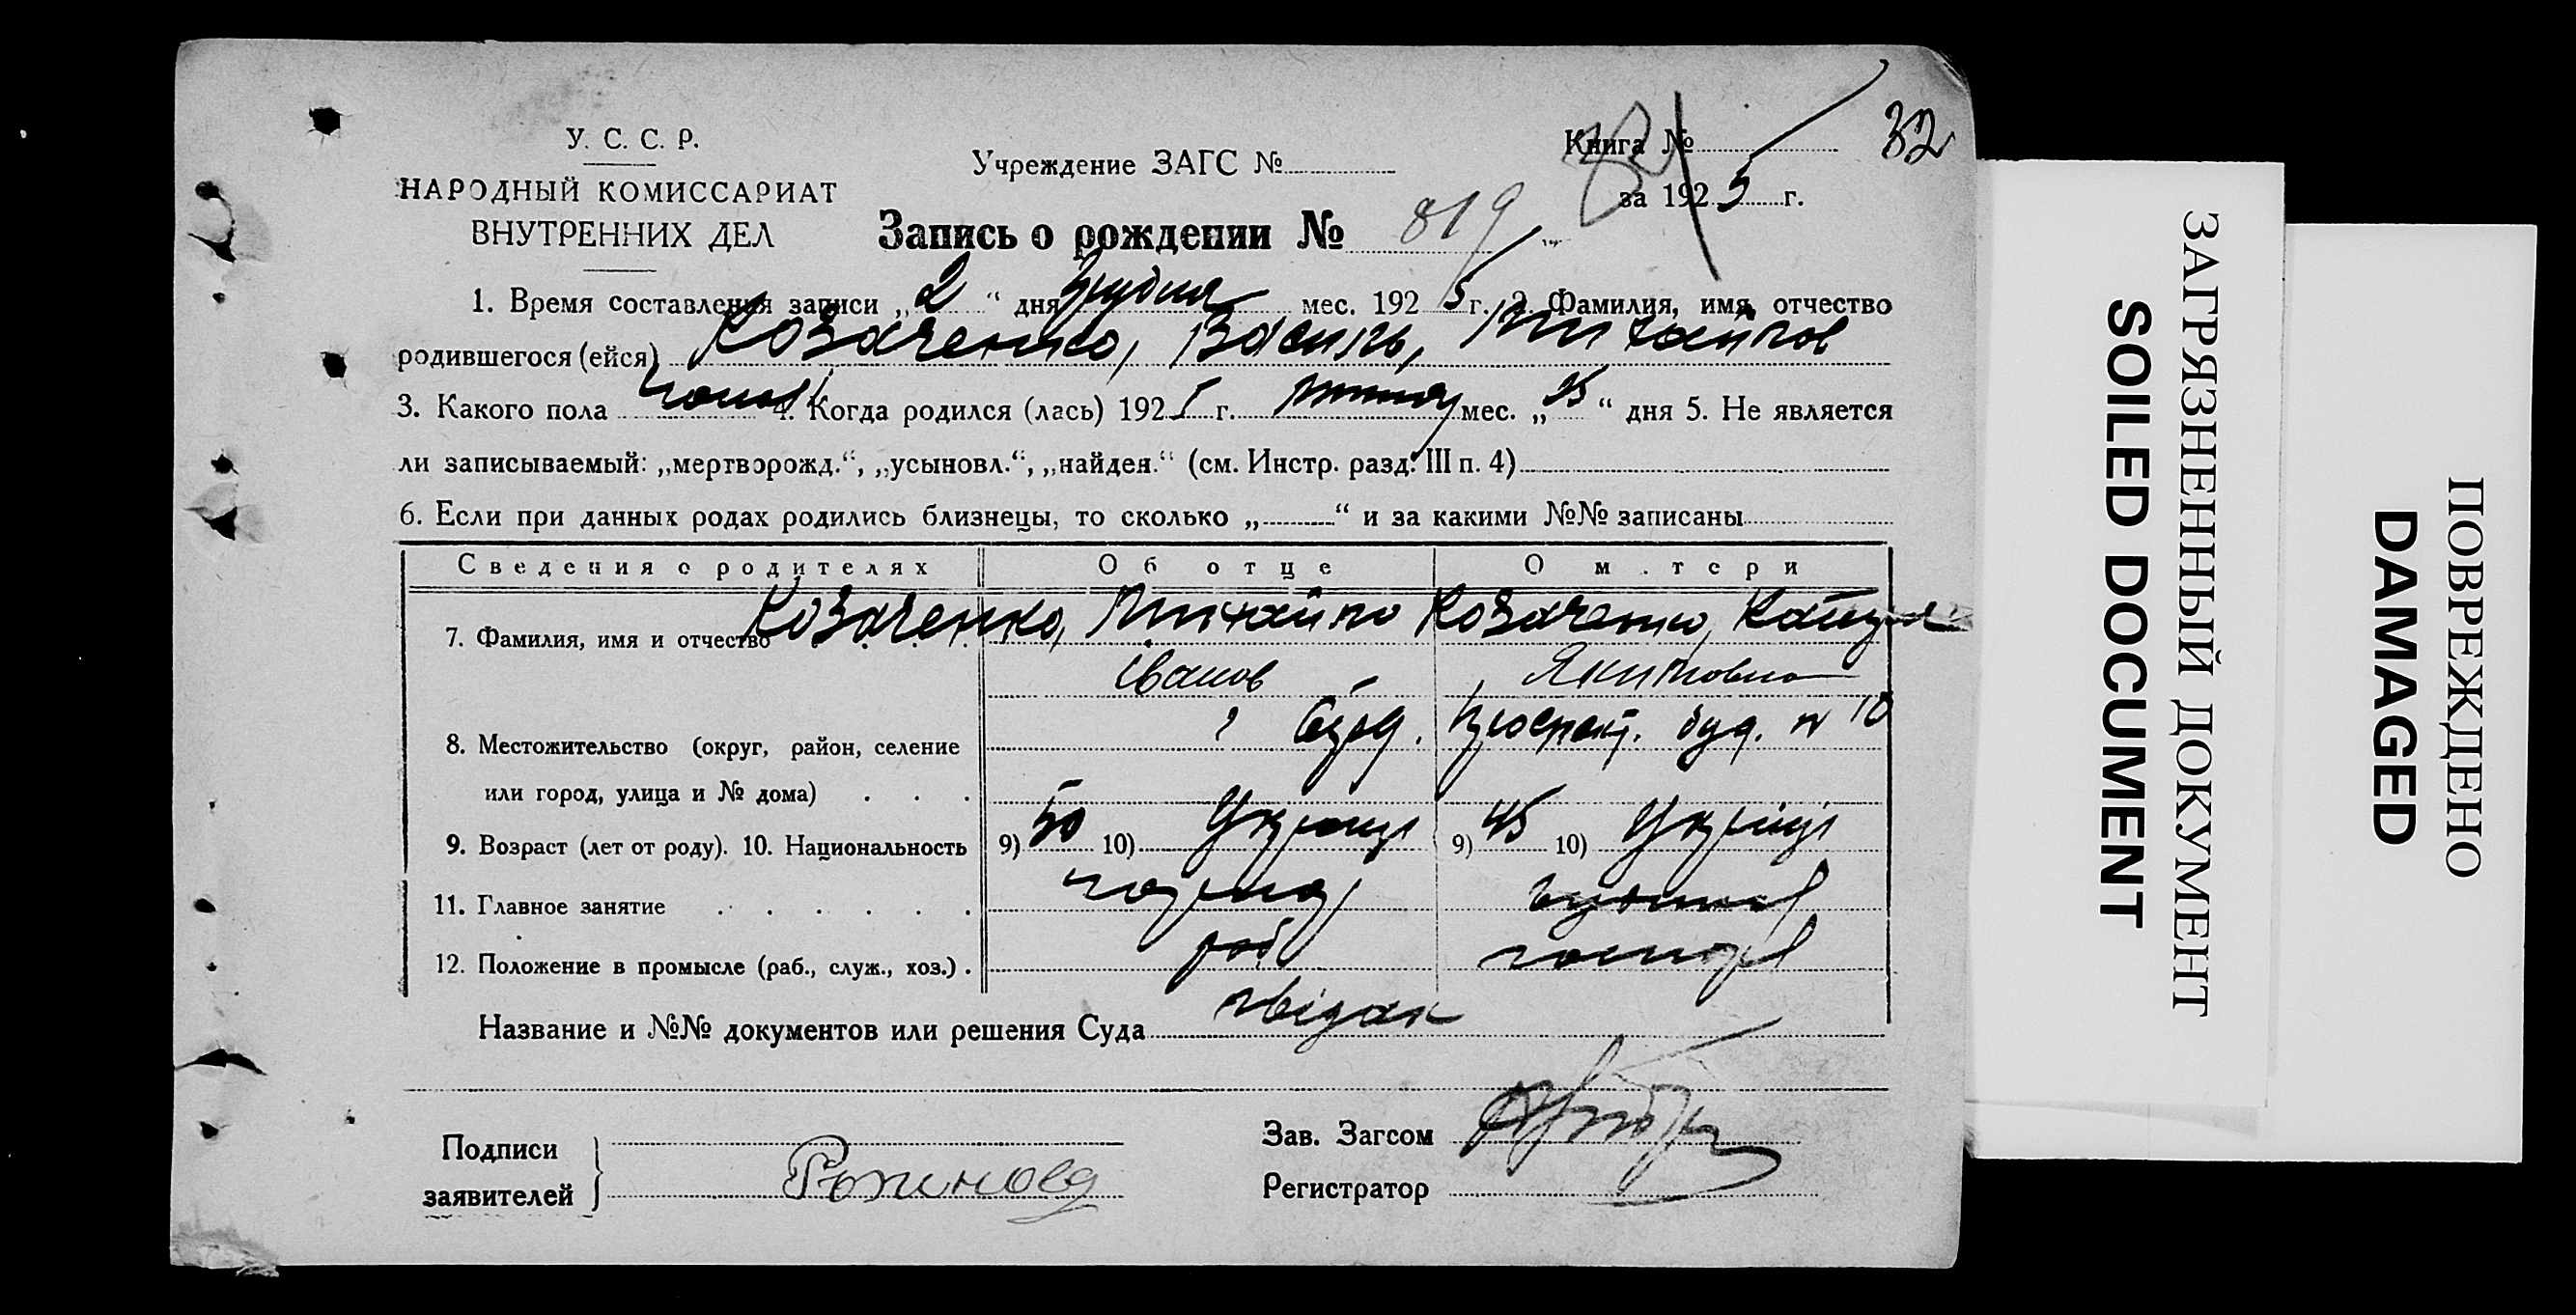 У. С. С. Р.
НАРОДНЫЙ КОМИССАРИАТ
ВНУТРЕННИХ ДЕЛ
Учреждение ЗАГС №
Книга №
32
за 1925 г.
Запись о рождении № 819
1. Время составления записи „2“ дня Грудня мес. 1925 г. 2. Фамилия, имя, отчество
родившегося (ейся) Козаченко, Василь, Михайлов
3. Какого пола чолов 4. Когда родился (лась) 1925 г. мес. „25“ дня 5. Не является
ли записываемый: „мертворожд.“, „усыновл.“, „найден.“ (см. Инстр. разд. III п. 4)
6. Если при данных родах родились близнецы, то сколько „ “ и за какими №№ записаны
Сведения о родителях Об отце О м.тери
7. Фамилия, имя и отчество Козаченко, Михайло Козаченко,
Іванов Якимовна
8. Местожительство (округ, район, селение буд. № 10
или город, улица и № дома)
9. Возраст (лет от роду). 10. Национальность 9) 50 10) 9) 45 10)
11. Главное занятие
12. Положение в промысле (раб., служ., хоз.). роб господ
Название и №№ документов или решения Суда
Подписи
заявителей
Зав. Загсом
Регистратор
ЗАГРЯЗНЕННЫЙ ДОКУМЕНТ
SOILED DOCUMENT
ПОВРЕЖДЕНО
DAMAGED